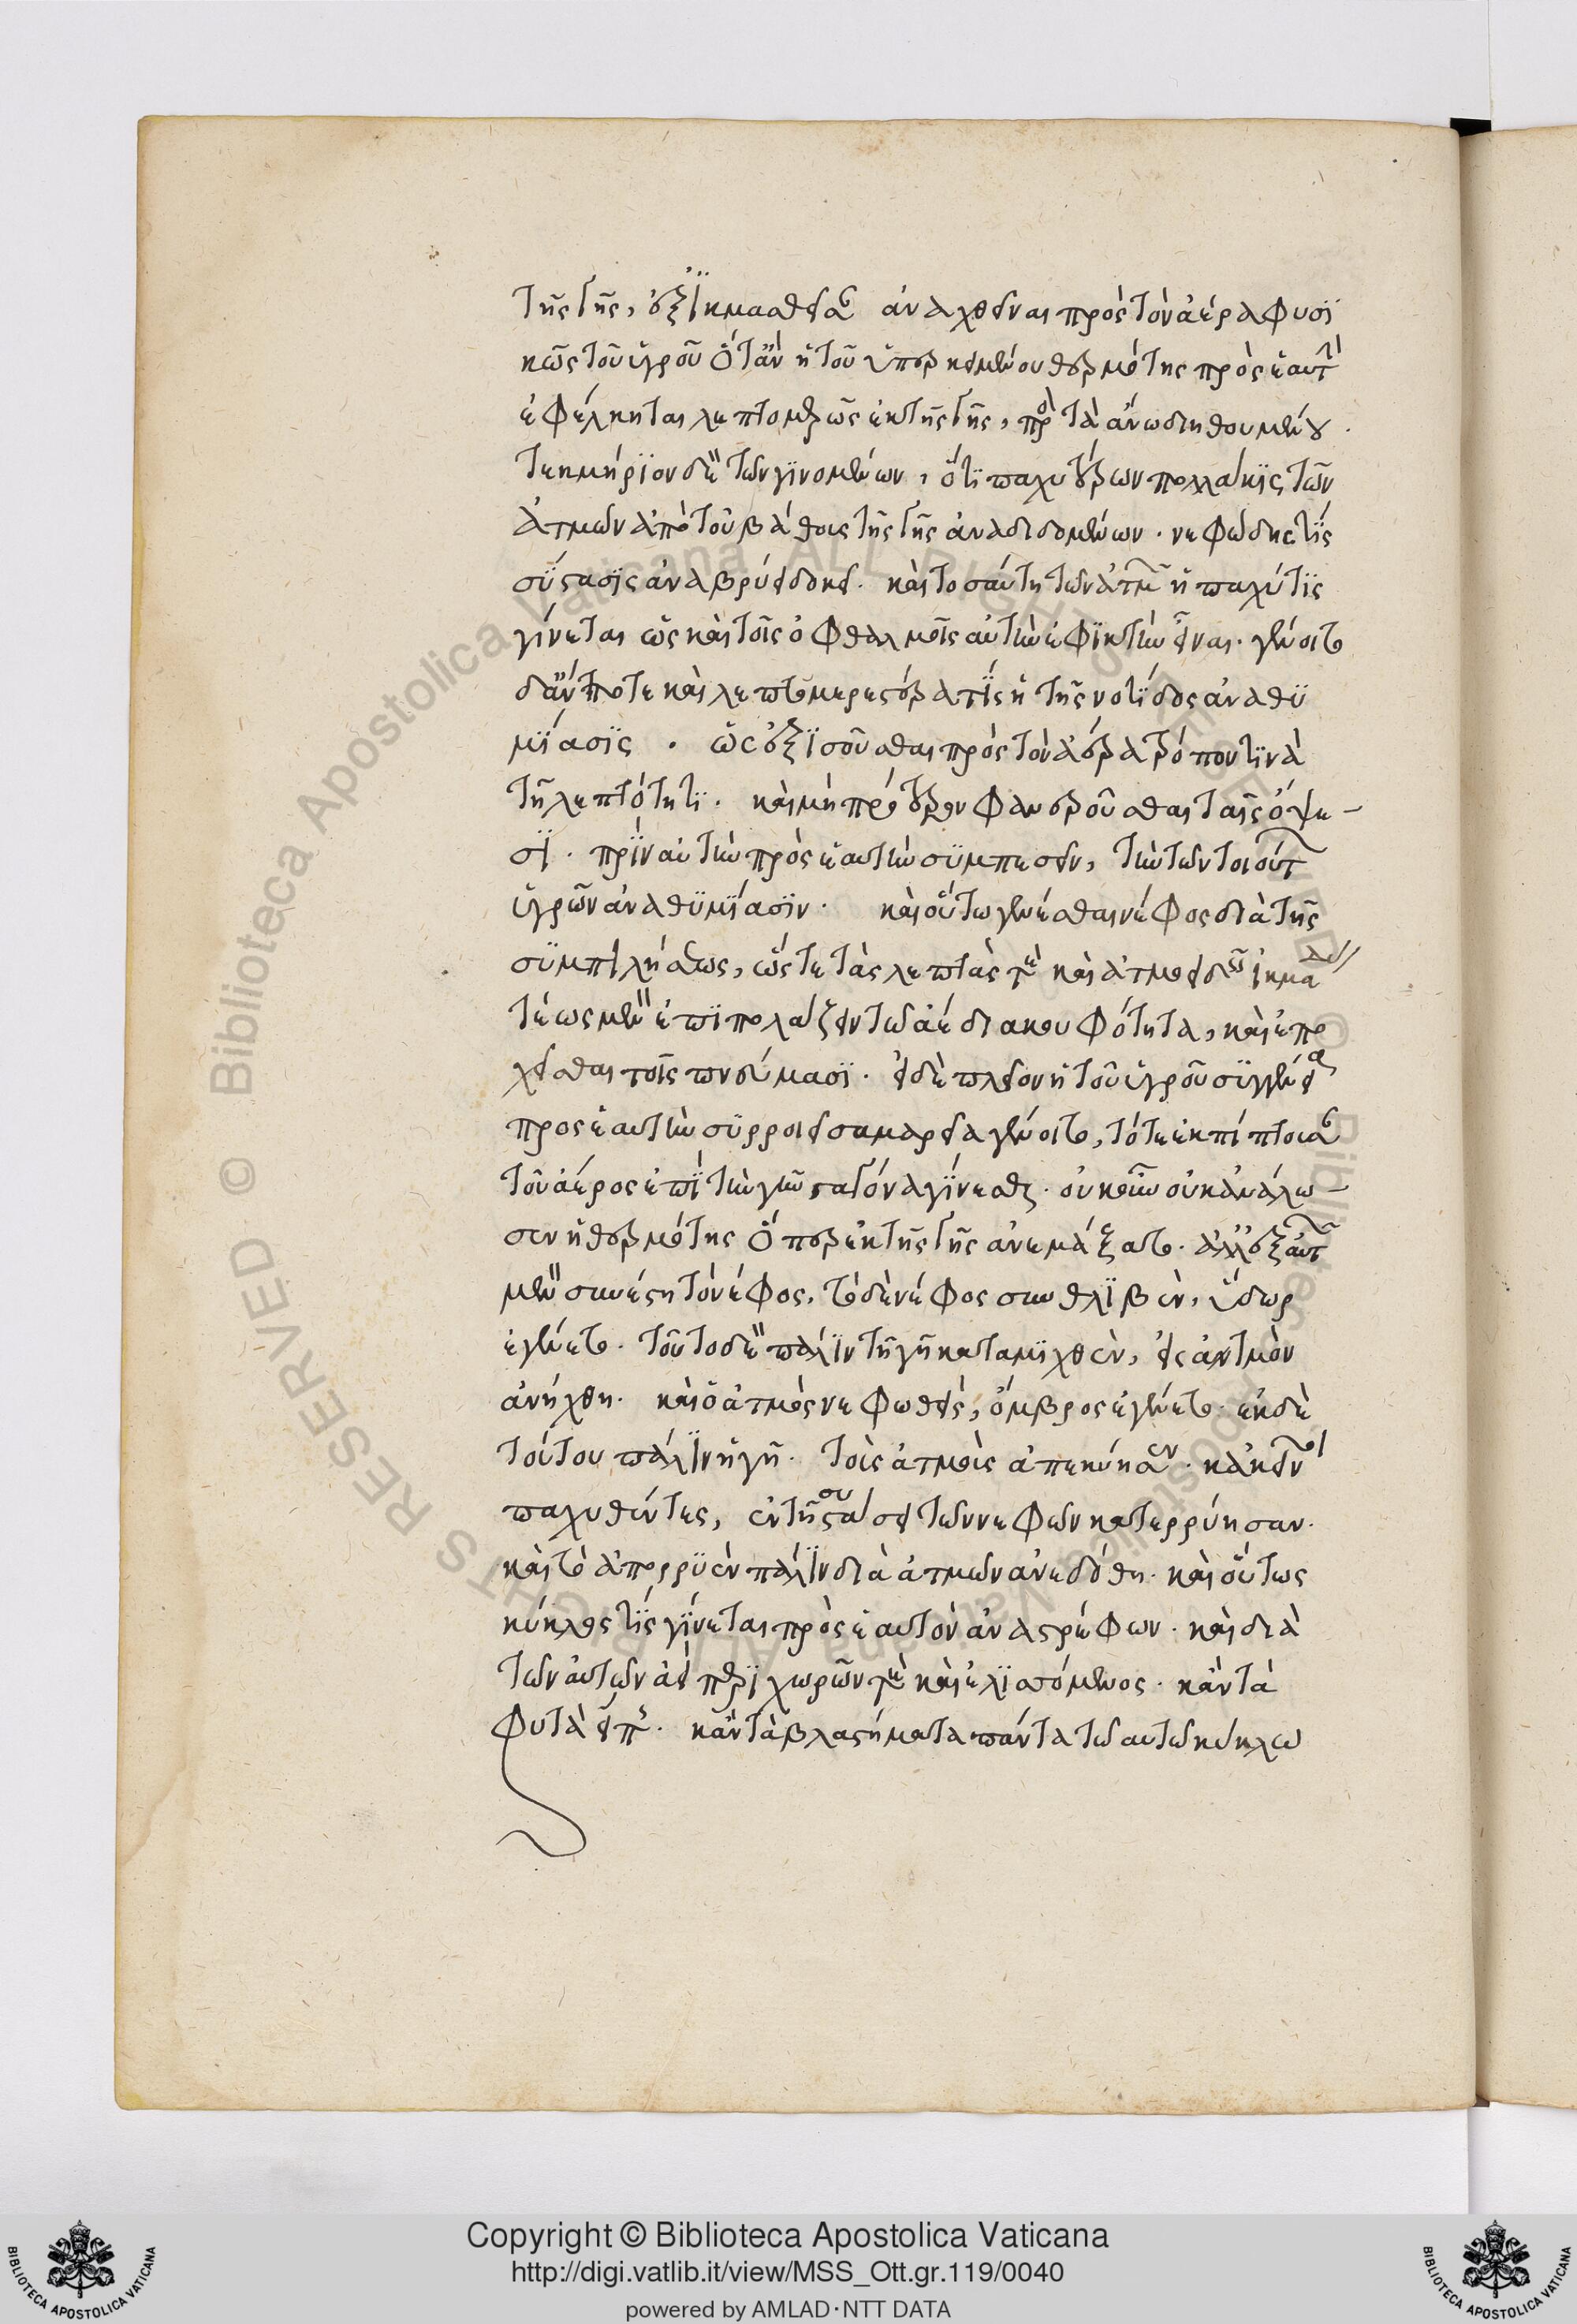 τῆς γῆς, ἐξικμασθεῖσα ἀναχθεῖναι πρὸς τὸν ἀέρα φυσϊ
κῶς τοῦ ὑγροῦ ὅτἂν ἡ τοῦ ὑπερκειμένου θερμότης πρὸς ἑαυτὴ
ἐφέλκηται λεπτομερῶς ἐκ τῆς γῆς, πρὸ τὰ ἄνω διηθουμένου.
τεκμήρϊον δὲ τῶν γϊνομένων, ὅτϊ παχυτέρων πολλάκϊς τῶν
ἀτμῶν ἀπὸ τοῦ βάθους τῆς γῆς ἀναδιδομένων. νεφώδης τϊς
σύστασϊς ἀναβρύει δοκεῖ. καὶ τοσαύτη τῶν ἀτμῶν ἡ παχύτϊς
γίνεται ὡς καὶ τοῖς ὀφθαλμοῖς αὐτὴν ἐφϊκτὴν εἶναι. γένοιτο
δἄν ποτε καὶ λεπτομερεστέρα τϊς ἡ τῆς νοτϊδος ἀναθϋ
μϊασϊς. ὡς ἐξϊσοῦσθαι πρὸς τὸν ἀέρα τρόπον τϊνὰ
τῇ λεπτότητϊ. καὶ μὴ πρότερον φανεροῦσθαι ταῖς ὄψε-
σϊ. πρϊν αὐτὴν πρὸς ἑαυτὴν σϋμπεσεῖν, τὴν τῶν τοιούτων
ὑγρῶν ἀναθϋμϊασϊν. καὶ οὕτω γενέσθαι νέφος διὰ τῆς
σϋμπϊλήσεως, ὥστε τὰς λεπτὰς τὲ καὶ ἀτμοειδεῖς ἰκμάδας
τέως μὲν ἐπϊπολάζειν τῶ ἀέ διακουφότητα, καὶ ἐπο
χεῖσθαι τοῖς πνεύμασϊ. εἰ δὲ πλεῖον ἡ τοῦ ὑγροῦ σϋγγένεια
προς ἑαυτὴν σϋρροιεῖσα μαρεῖα γένοιτο, τότε ἐκπίπτουσα
τοῦ ἀέρος ἐπϊ τὴν γῆν σταγόνα γϊνεσθαι. οὐκοῦν οὐκ ἀνάλω-
σεν ἡ θερμότης ὅπερ ἐκ τῆς γῆς ἀνεμάξατο. ἀλλ' ἐξ αὐτῶν
μὲν συνέστη τὸ νέφος, τὸ δὲ νέφος συνθλϊβὲν, ὕδωρ
ἐγένετο. τοῦτο δὲ παλϊν τῇ γῇ καταμϊχθὲν, εἰς ἀντμὸν
ἀνήχθη. καὶ ὁ ἀτμὸς νεφωθεὶς, ὄμβρος ἐγένετο. ἐκ δὲ
τούτου πάλϊν ἡ γῆ. τοὶς ἀτμοὶς ἀπεκύησεν. κἀκεῖνοι
παχυθέντες, ἐν τῇ συστάσει τῶν νεφῶν κατερρύησαν.
καὶ τὸ ἀπορρϋὲν πάλϊν διὰ ἀτμῶν ἀνεδόθη. καὶ οὕτως
κύκλος τϊς γϊνεται πρὸς ἑαυτὸν ἀναστρέφων. καὶ διὰ
τῶν αὐτῶν ἀεὶ περϊχωρῶν τὲ καὶ ἑλϊσσόμενος. κἂν τὰ
φυτὰ εἴπς. κἂν τὰ βλαστήματα πάντα τῶ αυτῶ κύκλω